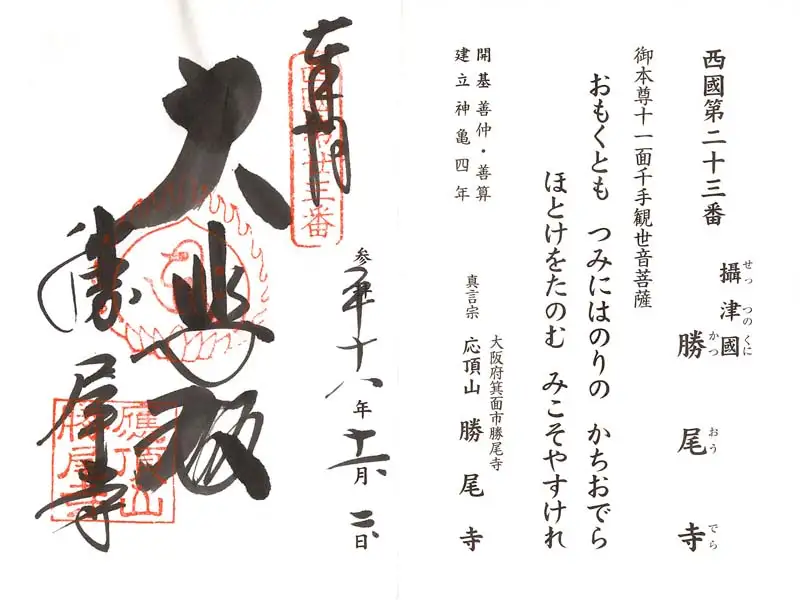 西國第二十三番
せっつのくに
攝津國
かつおうでら
勝尾寺
御本尊十一面千手観世音菩薩
おもくとも つみにはのりの かちおでら
ほとけをたのむ みこそやすけれ
開基 善仲・善算
建立 神亀四年
大阪府箕面市勝尾寺
真言宗 応頂山 勝尾寺
奉拝
西國第廿三番
十八年 月 日
大悲殿
勝尾寺
應頂山
勝尾寺